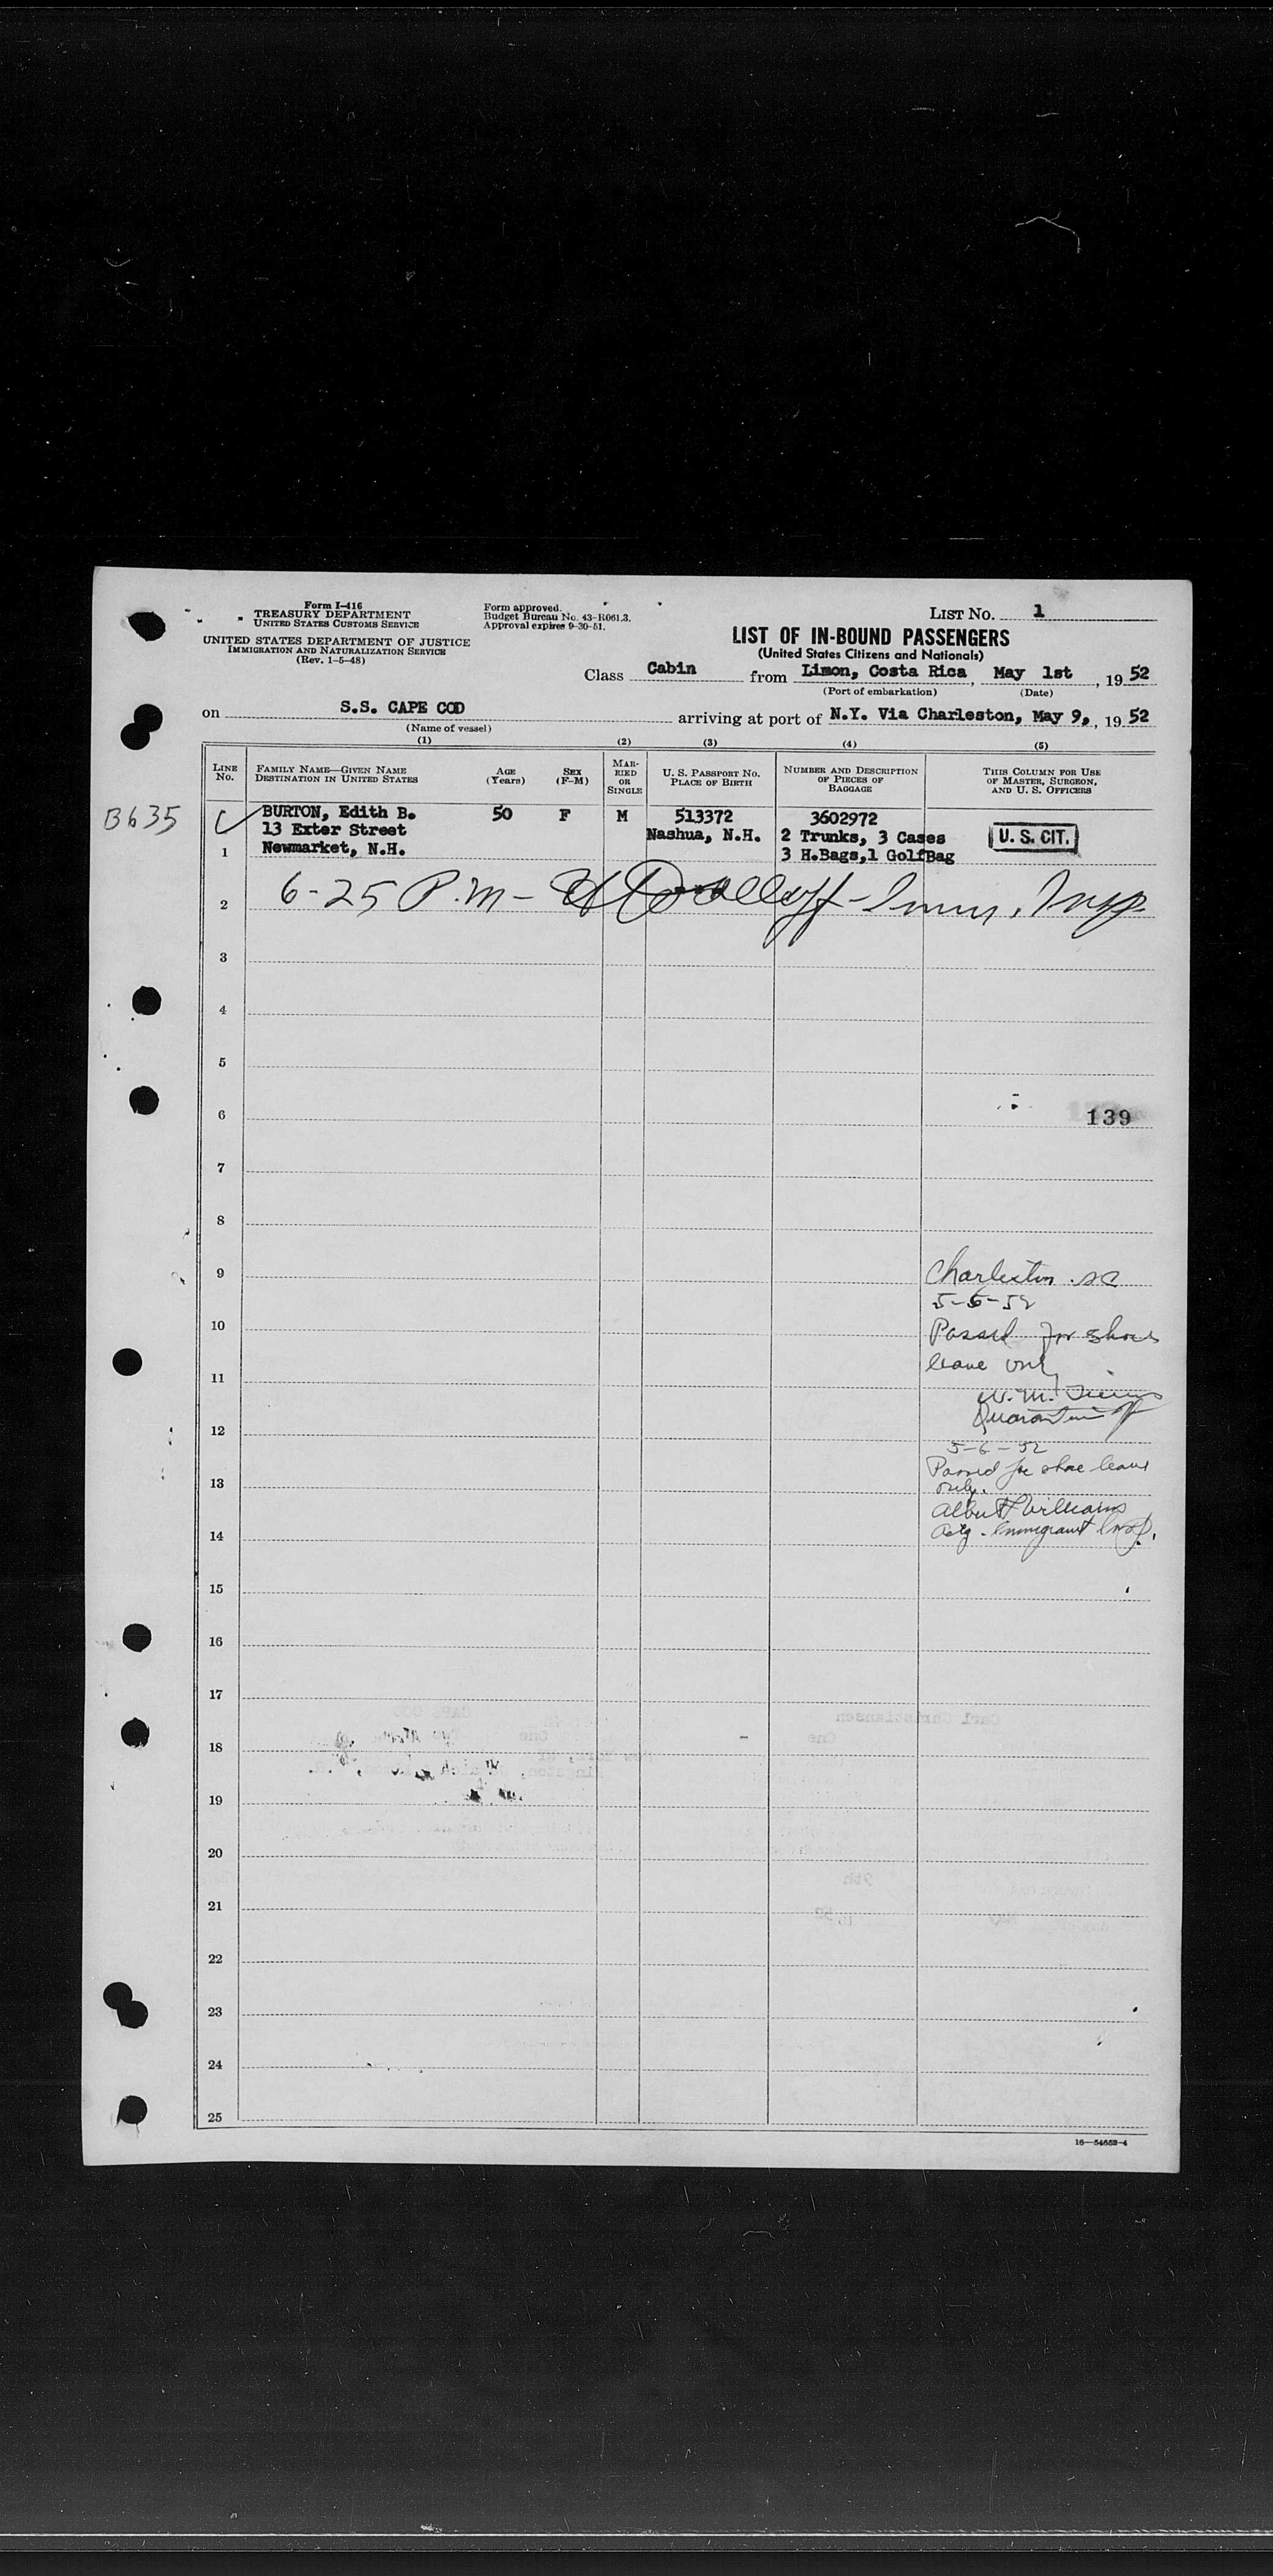 Form I-416
TREASURY DEPARTMENT
UNITED STATES CUSTOMS SERVICE
UNITED STATES DEPARTMENT OF JUSTICE
IMMIGRATION AND NATURALIZATION SERVICE
(Rev. 1-5-48)
Form approved.
Budget Bureau No. 43-R061.3.
Approval expires 9-30-51.
LIST NO. 1
LIST OF IN-BOUND PASSENGERS
(United States Citizens and Nationals)
Class Cabin from Limon, Costa Rica, May 1st, 1952
(Port of embarkation) (Date)
on S.S. CAPE COD arriving at port of N.Y. Via Charleston, May 9, 1952
(Name of vessel)
(1) (2) (3) (4) (5)
LINE NO.
FAMILY NAME—GIVEN NAME
DESTINATION IN UNITED STATES
AGE
(Years)
SEX
(F-M)
MAR-
RIED
OR
SINGLE
U. S. PASSPORT NO.
PLACE OF BIRTH
NUMBER AND DESCRIPTION
OF PIECES OF
BAGGAGE
THIS COLUMN FOR USE
OF MASTER, SURGEON,
AND U. S. OFFICERS
B635
1
BURTON, Edith B. 50 F M 513372 3602972
13 Exter Street Nashua, N.H. 2 Trunks, 3 Cases U. S. CIT.
Newmarket, N.H. 3 H.Bags,1 GolfBag
2 6-25 P.M - Imm. Insp.
3
4
5
6 139
7
8
9 Charleston SC
5-6-52
10 Passed for shore
leave only
11
W. M.
Quarantine
12
5-6-52
Passed for shore leave
13 only.
Albert Williams
14 Actg - Immigrant Insp.
15
16
17
18
19
20
21
22
23
24
25
16—54652-4